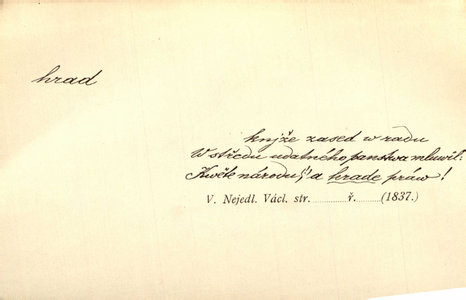 hrad
knjže zased w radu
W středu udatného panstwa mluwil:
Kwěte národu, a hrade práw!
V. Nejedl. Václ. str. ............ ř. ......... (1837.)